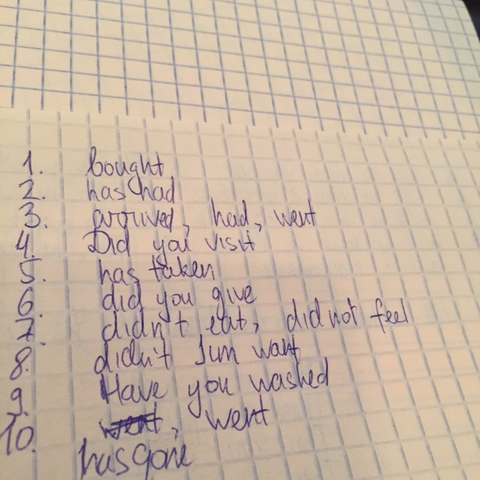 1. bought
2. has had
3. arrived, had, went
4. Did you visit
5. has taken
6. did you give
7. didn't eat, did not feel
8. didn't Jim want
9. Have you washed
10. went, went
has gone